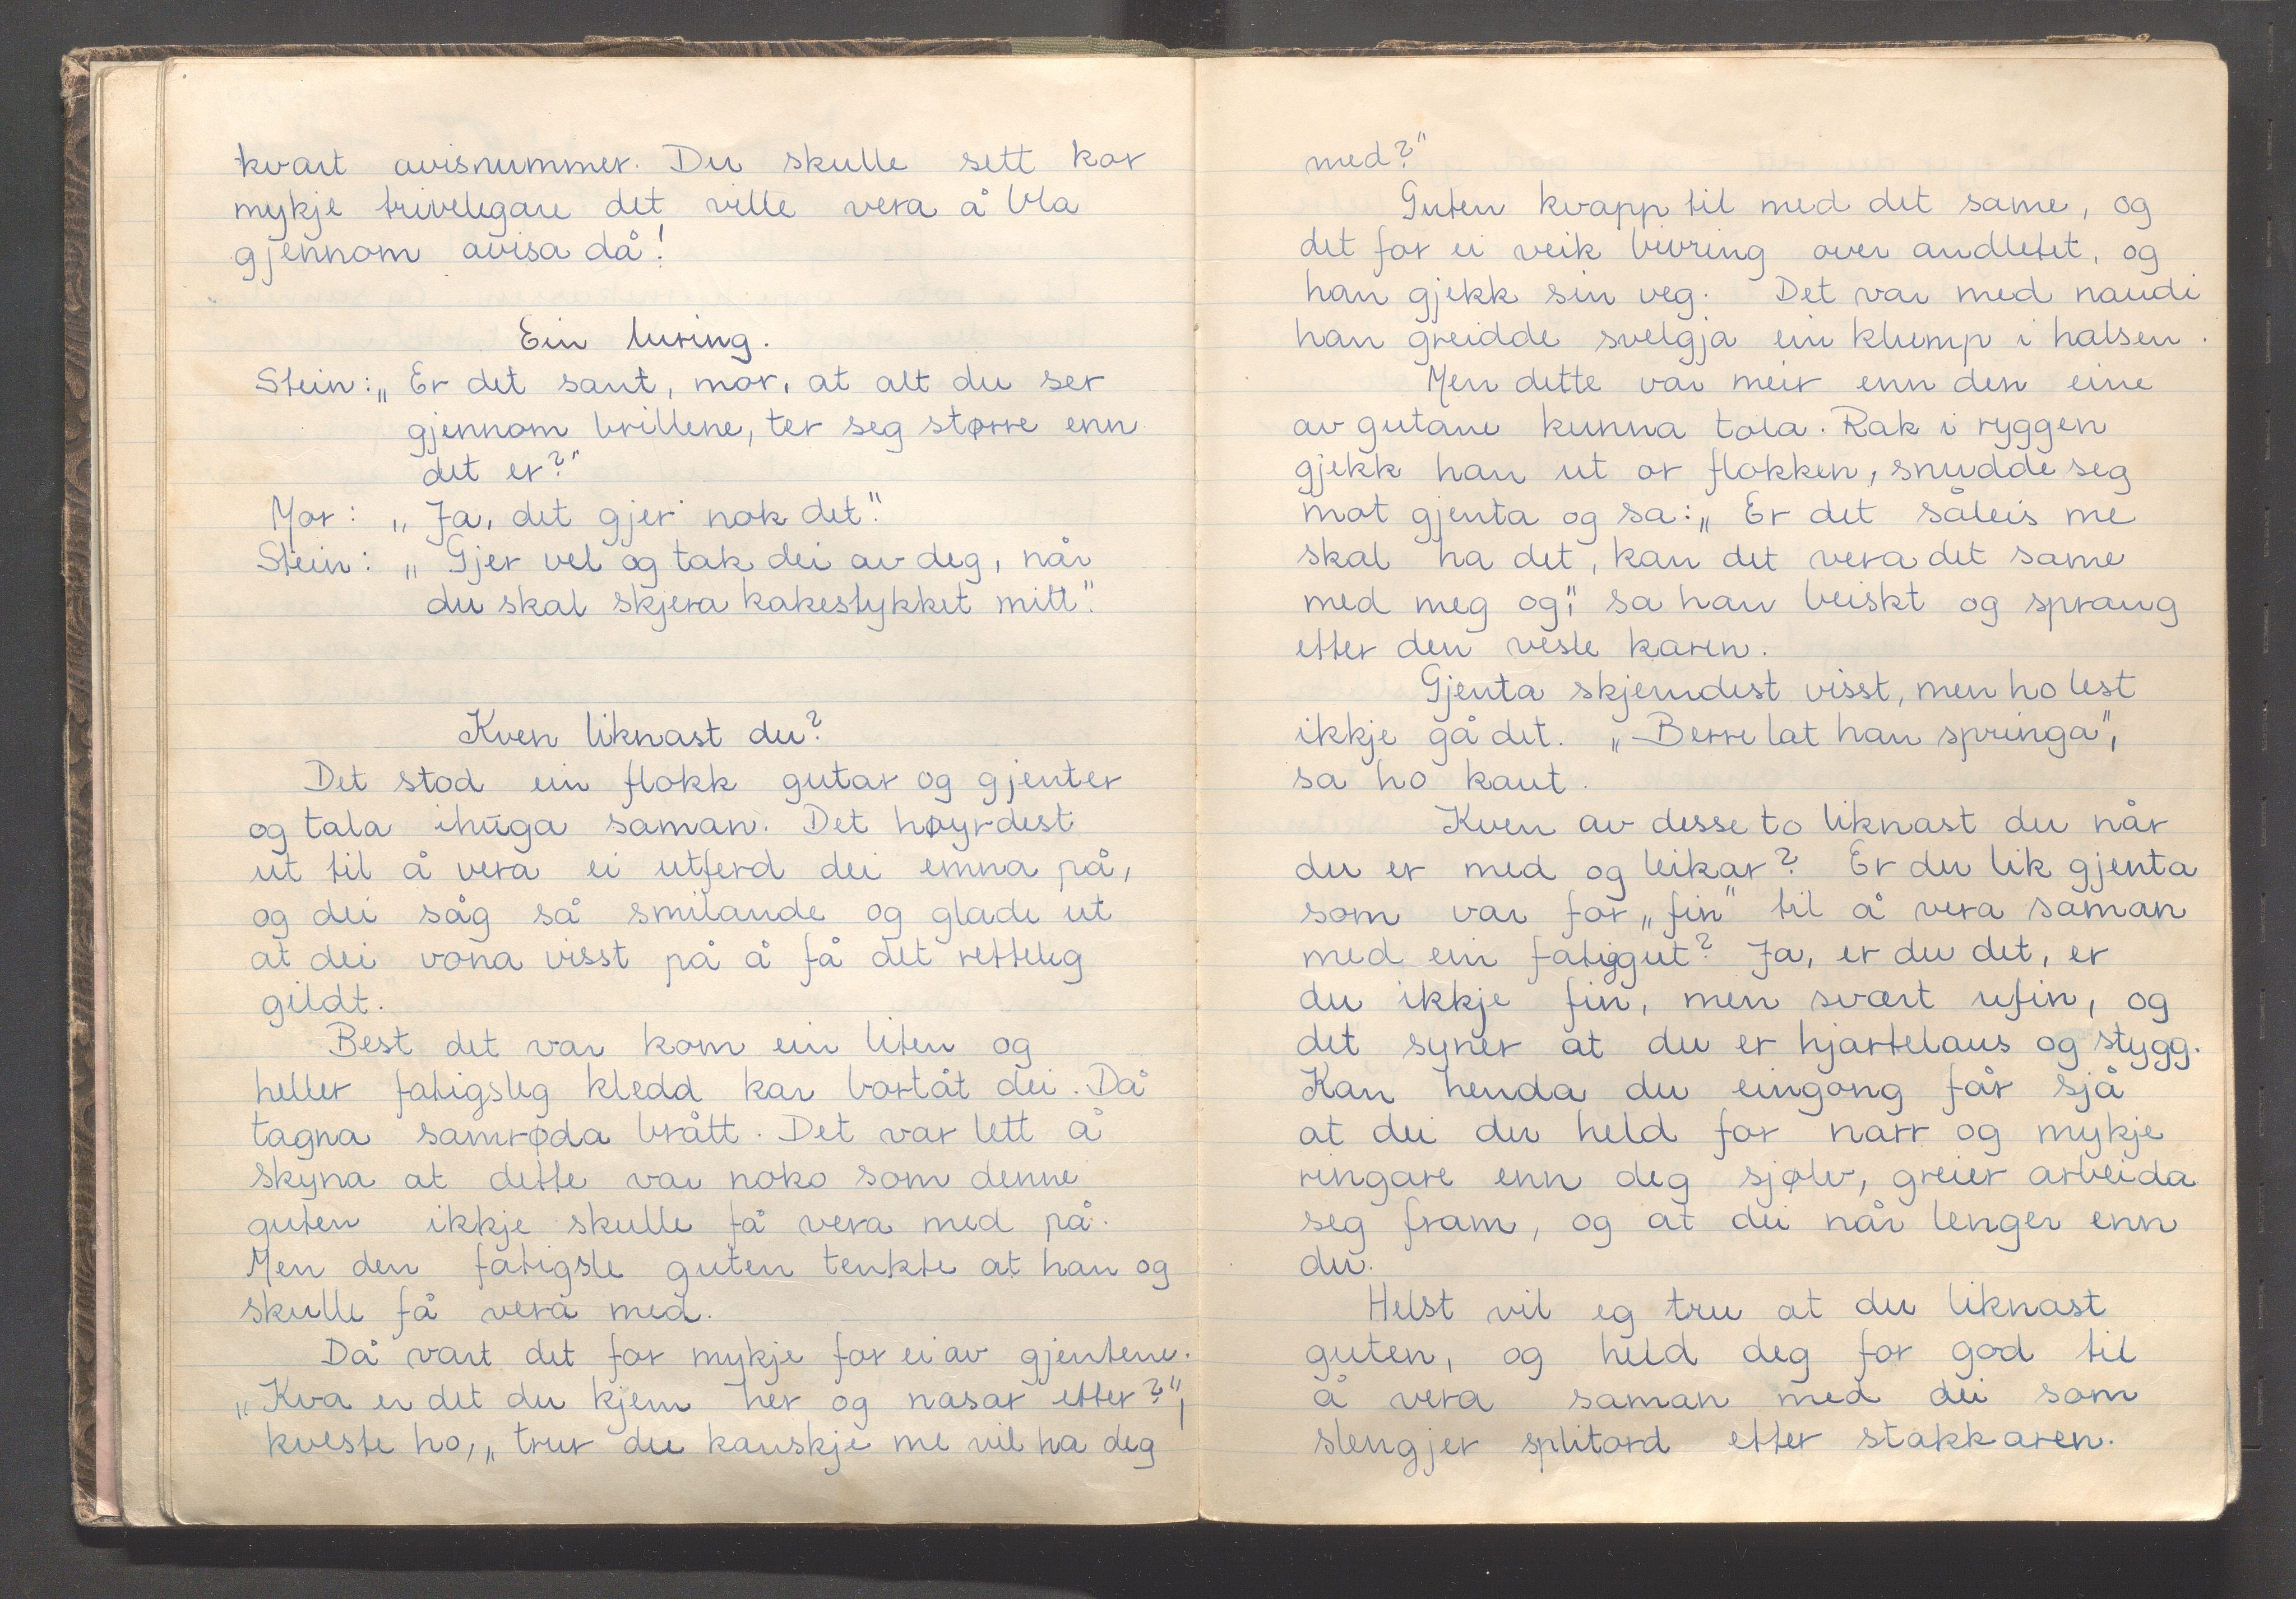 kvart avisnummer. Du skulle sett kor
mykje trivelegare det ville vera å bla
gjennom avisa då!
Ein luring.
Stein: „Er det sant, mor, at alt du ser
gjennom brillene, ter seg større enn
det er?"
Mor: „Ja, det gjer nok det".
Stein: „Gjer vel og tak dei av deg, når
du skal skjera kakestykket mitt".
Kven liknast du?
Det stod ein flokk gutar og gjenter
og tala ihuga saman. Det høyrdest
ut til å vera ei utferd dei emna på,
og dei såg så smilande og glade ut
at dei vona visst på å få det retteleg
gildt.
Best det var kom ein liten og
heller fatigsleg kledd kar bortåt dei. Då
tagna samrøda brått. Det var lett å
skyna at dette var noko som denne
guten ikkje skulle få vera med på.
Men den fatigsle guten tenkte at han og
skulle få vera med.
Då vart det for mykje for ei av gjentene.
„Kva er det du kjem her og nasar etter?",
kveste ho, „trur du kanskje me vil ha deg
med?"
Guten kvapp til med det same, og
det for ei veik bivring over andletet, og
han gjekk sin veg. Det var med naudi
han greidde svelgja ein klump i halsen.
Men dette var meir enn den eine
av gutane kunna tola. Rak i ryggen
gjekk han ut or flokken, snudde seg
mot gjenta og sa: „Er det såleis me
skal ha det, kan det vera det same
med meg og", sa han beiskt og sprang
etter den vesle karen.
Gjenta skjemdest visst, men ho lest
ikkje gå det. „Berre lat han springa",
sa ho kaut.
Kven av desse to liknast du når
du er med og leikar? Er du lik gjenta
som var for „fin" til å vera saman
med ein fatiggut? Ja, er du det, er
du ikkje fin, men svært ufin, og
det syner at du er hjartelaus og stygg.
Kan henda du eingong får sjå
at dei du held for narr og mykje
ringare enn deg sjølv, greier arbeida
seg fram, og at dei når lenger enn
du.
Helst vil eg tru at du liknast
guten, og held deg for god til
å vera saman med dei som
slengjer splitord etter stakkaren.